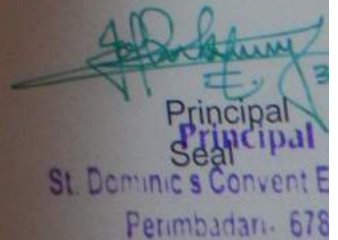 Principal
Principal
Seal
St. Dominic s Convent E
Perimbadari- 678